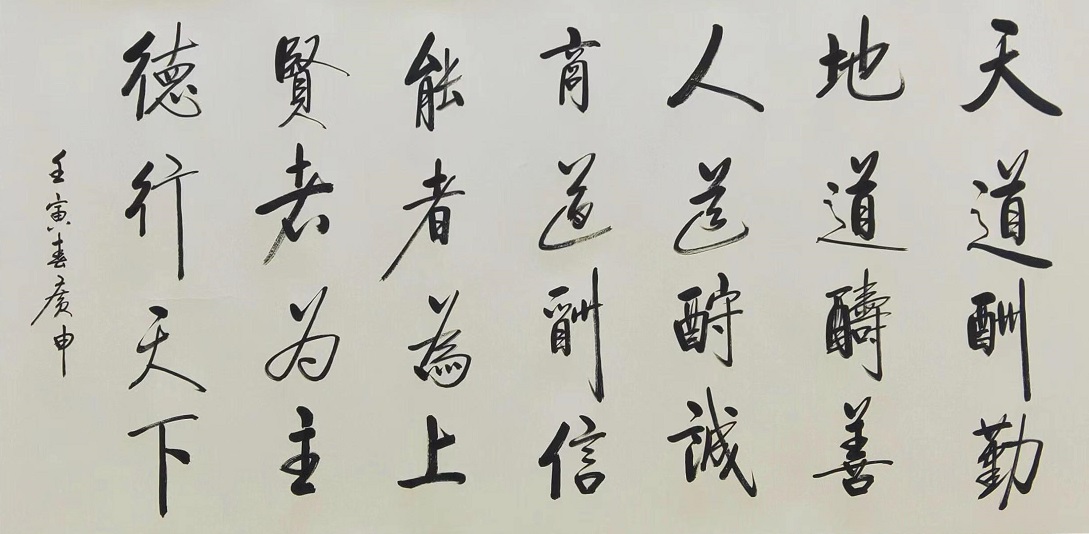 天道酬勤
地道醻善
人道酧誠
商道酬信
能者為上
賢者为主
德行天下
壬寅春廣申